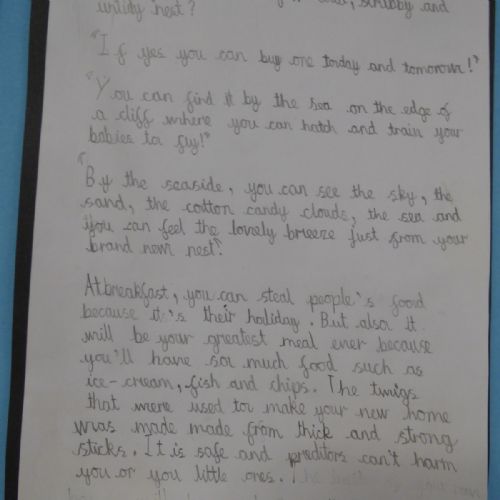 scrubby and
untidy nest?
"If yes you can buy one today and tomorrow!"
"You can find it by the sea on the edge of
a cliff where you can hatch and train your
babies to fly!"
"
By the seaside, you can see the sky, the
sand, the cotton candy clouds, the sea and
you can feel the lovely breeze just from your
brand new nest."
At breakfast, you can steal people's food
because it's their holiday. But also it
will be your greatest meal ever because
you'll have so much food such as
ice-cream, fish and chips. The twigs
that were used to make your new home
was made made from thick and strong
sticks. It is safe and preditors can't harm
you or you little ones.